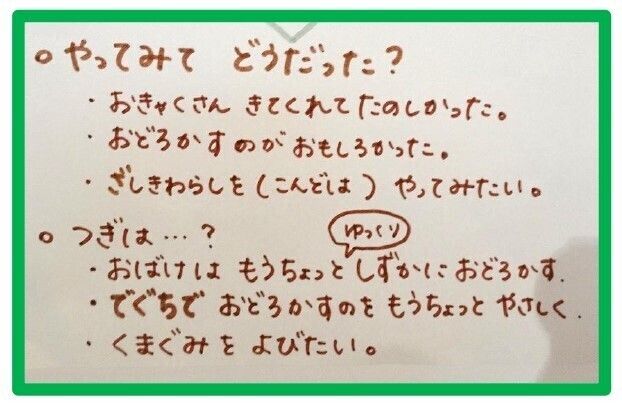 ○ やってみて どうだった？
・おきゃくさん きてくれて たのしかった。
・おどろかすのが おもしろかった。
・ざしきわらしを（こんどは）やってみたい。
○ つぎは…？
ゆっくり
・おばけは もうちょっと しずかに おどろかす.
・でぐちで おどろかすのを もうちょっと やさしく.
・くまぐみを よびたい。